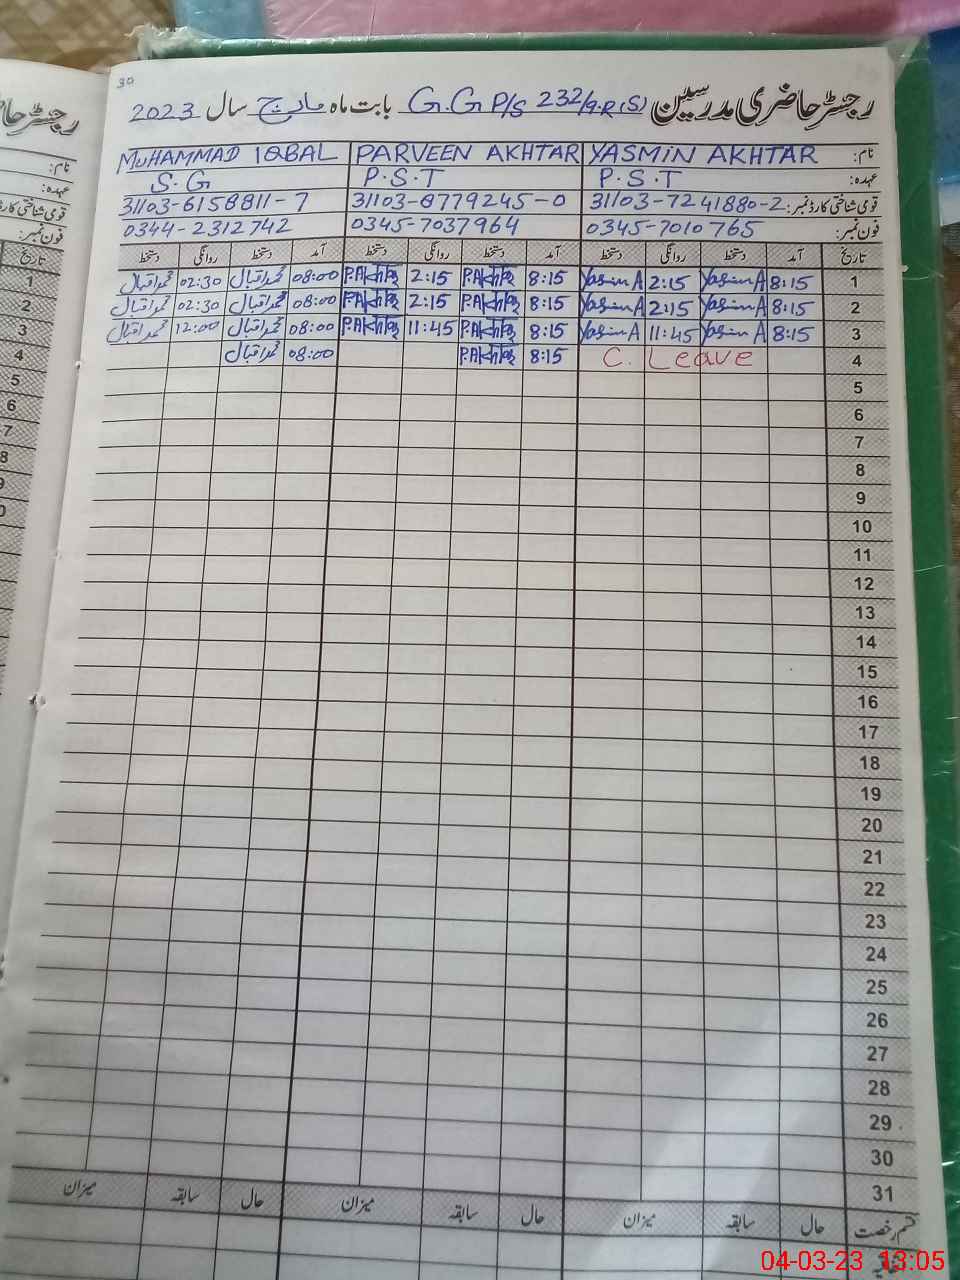 30
رجسٹر حاضری مدرسین G.G P/S 232/9.R(S) بابت ماہ مارچ سال 2023
نام: YASMIN AKHTAR PARVEEN AKHTAR MUHAMMAD IQBAL
عہدہ: P.S.T P.S.T S.G
قومی شناختی کارڈ نمبر: 31103-7241880-2 31103-8779245-0 31103-6158811-7
فون نمبر: 0345-7010765 0345-7037964 0344-2312742
تاریخ آمد دستخط روانگی دستخط آمد دستخط روانگی دستخط آمد دستخط روانگی دستخط
1 8:15 Yasmin A 2:15 Yasmin A 8:15 P.Akhtar 2:15 P.Akhtar 08:00 محمد اقبال 02:30 محمد اقبال
2 8:15 Yasmin A 2:15 Yasmin A 8:15 P.Akhtar 2:15 P.Akhtar 08:00 محمد اقبال 02:30 محمد اقبال
3 8:15 Yasmin A 11:45 Yasmin A 8:15 P.Akhtar 11:45 P.Akhtar 08:00 محمد اقبال 12:00 محمد اقبال
4 C. Leave 8:15 P.Akhtar 08:00 محمد اقبال
5
6
7
8
9
10
11
12
13
14
15
16
17
18
19
20
21
22
23
24
25
26
27
28
29
30
31
قسم رخصت حال سابقہ میزان حال سابقہ میزان حال سابقہ میزان
04-03-23 13:05